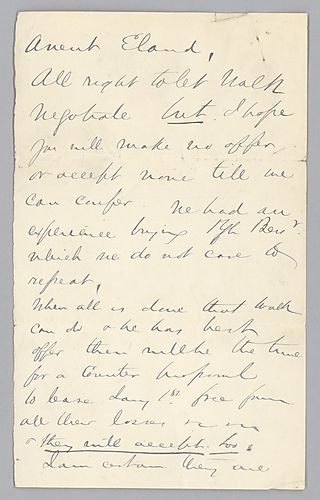 Anent Eland,
All right to let Walk
negotiate but I hope
you will make no offer
or accept none till we
can confer. We had an
experience buying
which we do not care to
repeat,
When all is done that Walk
can do & he has best
offer then will be the time
for a Counter proposal
to lease Jany 1st free from
all their losses
& they will accept too,
I am certain they are